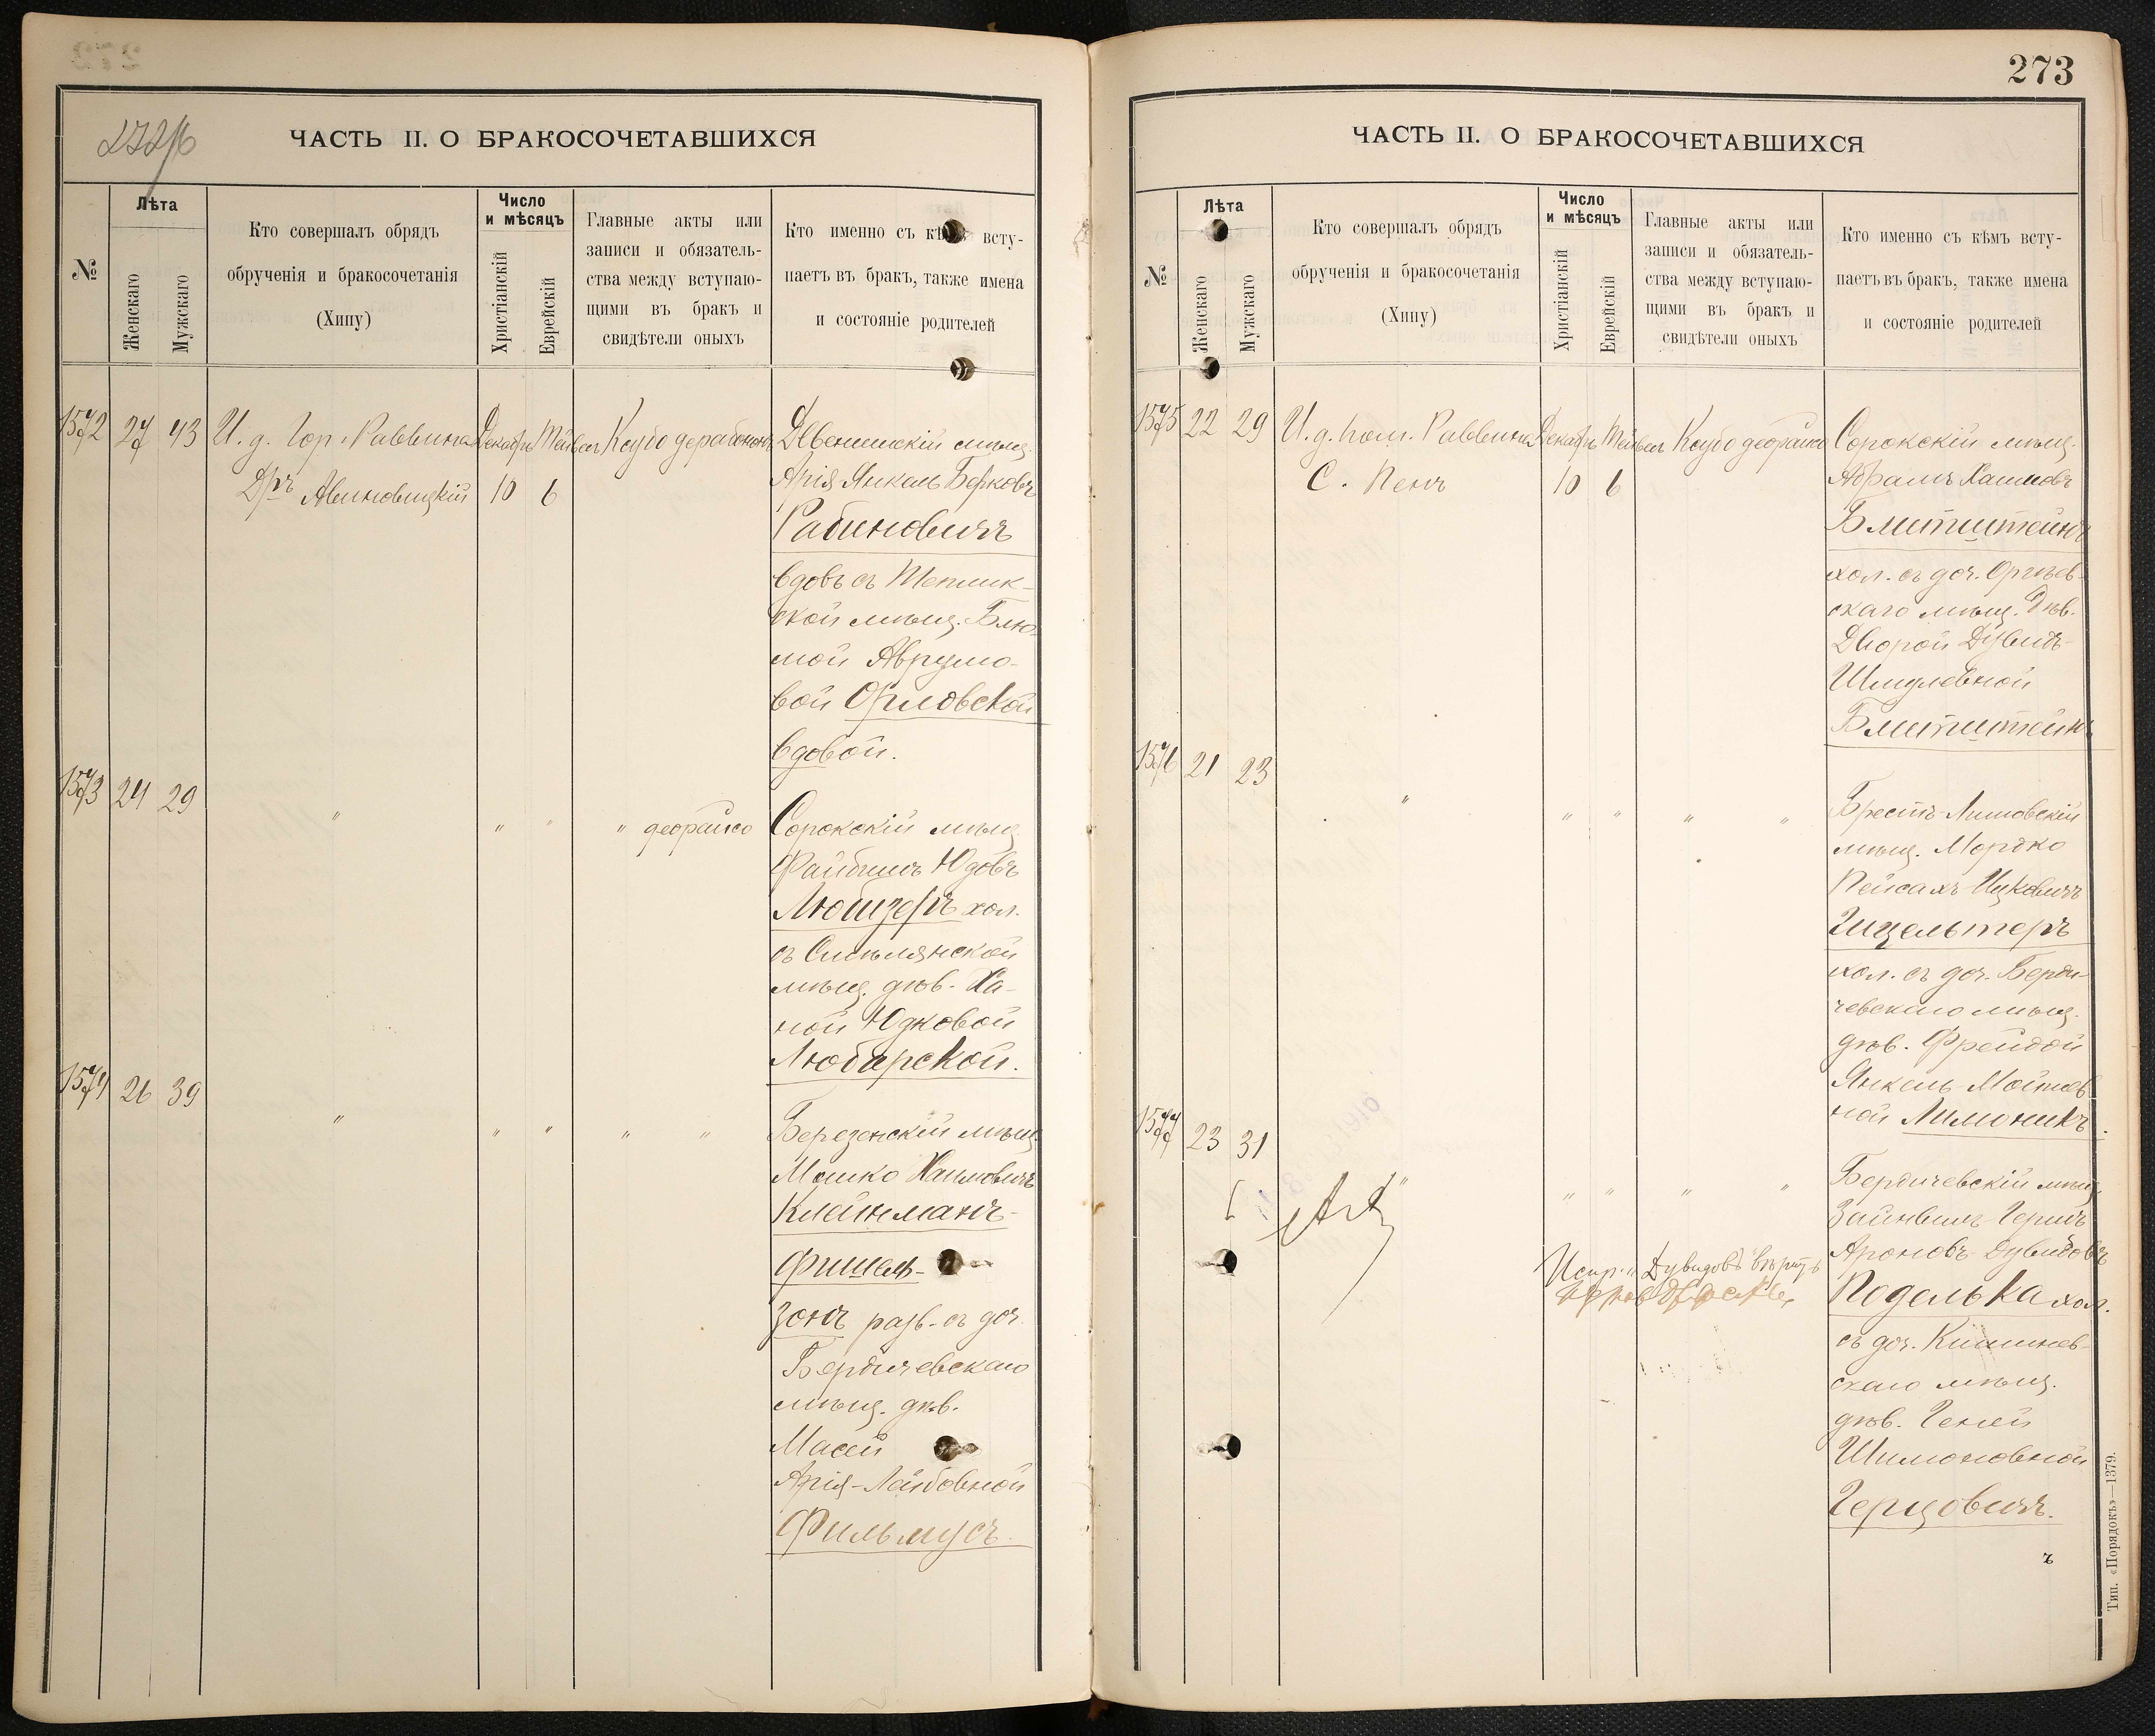 272/б
ЧАСТЬ II. О БРАКОСОЧЕТАВШИХСЯ
№
Лѣта
Женскаго
Мужскаго
Кто совершалъ обрядъ
обрученія и бракосочетанія
(Хипу)
Число
и мѣсяцъ
Христіанскій
Еврейскій
Главные акты или
записи и обязатель-
ства между вступаю-
щими въ бракъ и
свидѣтели оныхъ
Кто именно съ кѣмъ всту-
паетъ въ бракъ, также имена
и состояніе родителей
1572 27 43 И. д. Гор. Раввина Декабрь Тейвеса Ксубо
Дръ Авиновицкій 10 6
мѣщ.
Арія Янкель Берковъ
Рабиновичъ
вдовъ съ Теплик-
ской мѣщ. Блю-
мой Аврумо-
вой Орловской
вдовой.
1573 24 29
" " " " деорайсо
Сорокскій мѣщ.
Файбишъ Юдовъ
хол.
съ Смѣлянской
мѣщ. дѣв. Ха-
ной Юдковой
Любарской.
1574 26 39
" " " " "
Березенскій мѣщ.
Мошко Хаимовичъ
Клейнманъ-
Фишель-
зонъ разв. съ доч.
Бердичевскаго
мѣщ. дѣв.
Масей
Арія-Лейбовной
Фильмусъ.
273
ЧАСТЬ II. О БРАКОСОЧЕТАВШИХСЯ
№
Лѣта
Женскаго
Мужскаго
Кто совершалъ обрядъ
обрученія и бракосочетанія
(Хипу)
Число
и мѣсяцъ
Христіанскій
Еврейскій
Главные акты или
записи и обязатель-
ства между вступаю-
щими въ бракъ и
свидѣтели оныхъ
Кто именно съ кѣмъ всту-
паетъ въ бракъ, также имена
и состояніе родителей
1575 22 29 И. д. пом. Раввина Декабрь Тейвеса Ксубо деорайсо
С. Пенъ 10 6
Сорокскій мѣщ.
Абрамъ Хаимовъ
Блитштейнъ
хол. съ доч. Оргѣев-
скаго мѣщ. Дѣв.
Дворой Дувидъ-
Шмулевной
Блитштейнъ
1576 21 23
" " " " "
Брестъ-Литовскій
мѣщ. Мордко
Пейсахъ Ицковичъ
Гицельтеръ
хол. съ доч. Берди-
чевскаго мѣщ.
дѣв. Фрейдой
Янкель-Мойшев-
ной Лимоникъ.
1577 23 31
" " " " "
Бердичевскій мѣщ.
Зайнвель-Гершъ
Ароновъ-Дувидовъ
Поделька хол.
съ доч. Кишинев-
скаго мѣщ.
дѣв. Геней
Шимоновной
Герцовичъ.
Испр. "Дувидовъ" вѣрить
Тип. «Порядокъ»—1379.